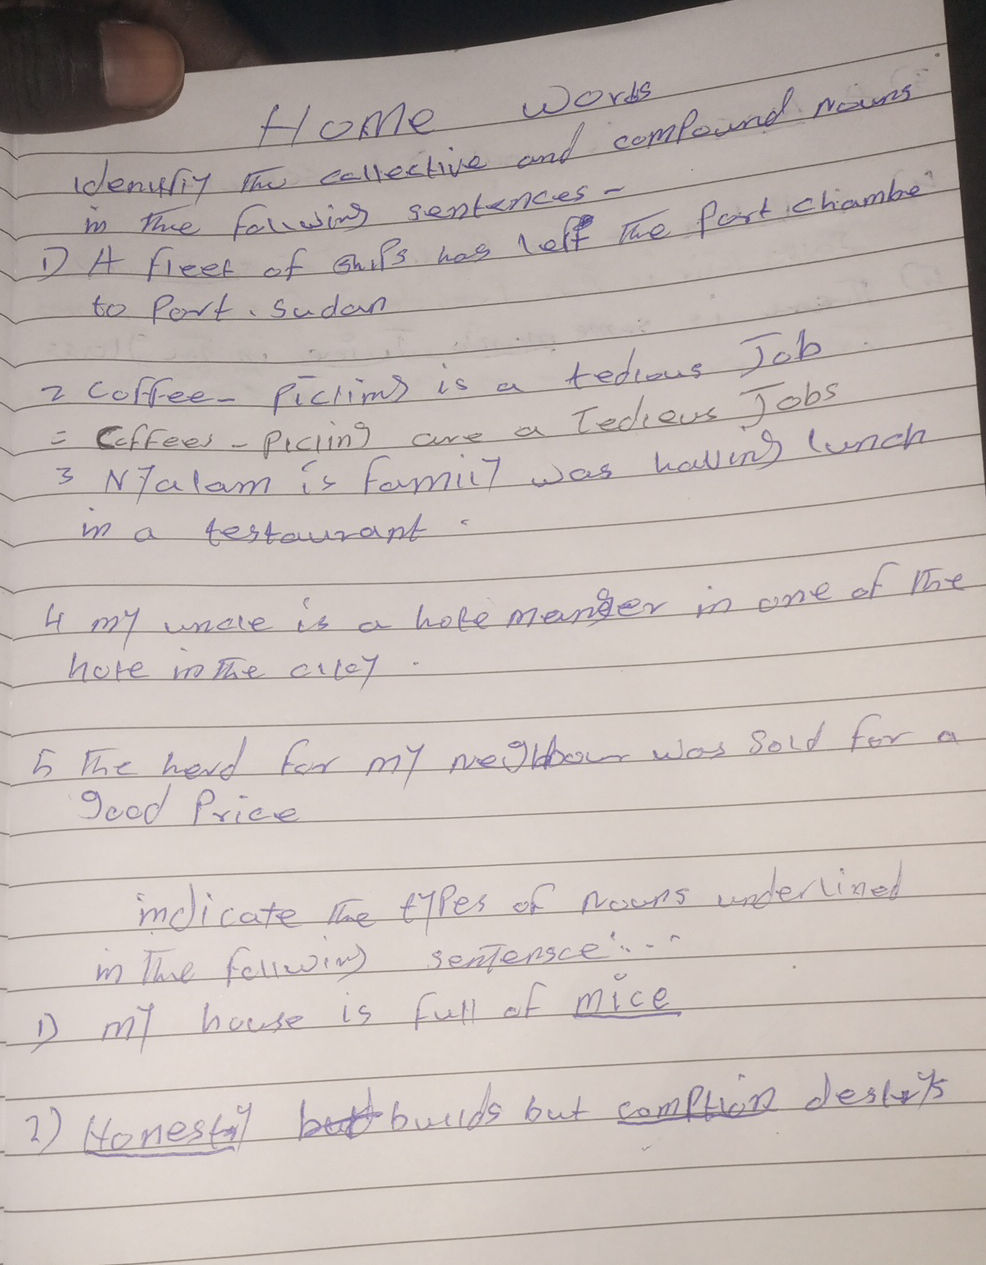 Home Words
Idenify the collective and compound nouns
in the follwing sentences -
1) A fleet of ships has left the Port chambe
to Port. Sudan
2 Coffee - Picting is a tedious Job
= Coffees - Picting are a Tedieus Jobs
3 N7alam is famil7 was having lunch
in a testaurant.
4 my uncle is a hote manger in one of the
hote in the citey.
5 The herd for my neighbour was Sold for a
good Price
indicate the types of Nouns underlined
in the follwing sentensce:...
1) my house is full of mice
2) Honesty but builds but comption destrys